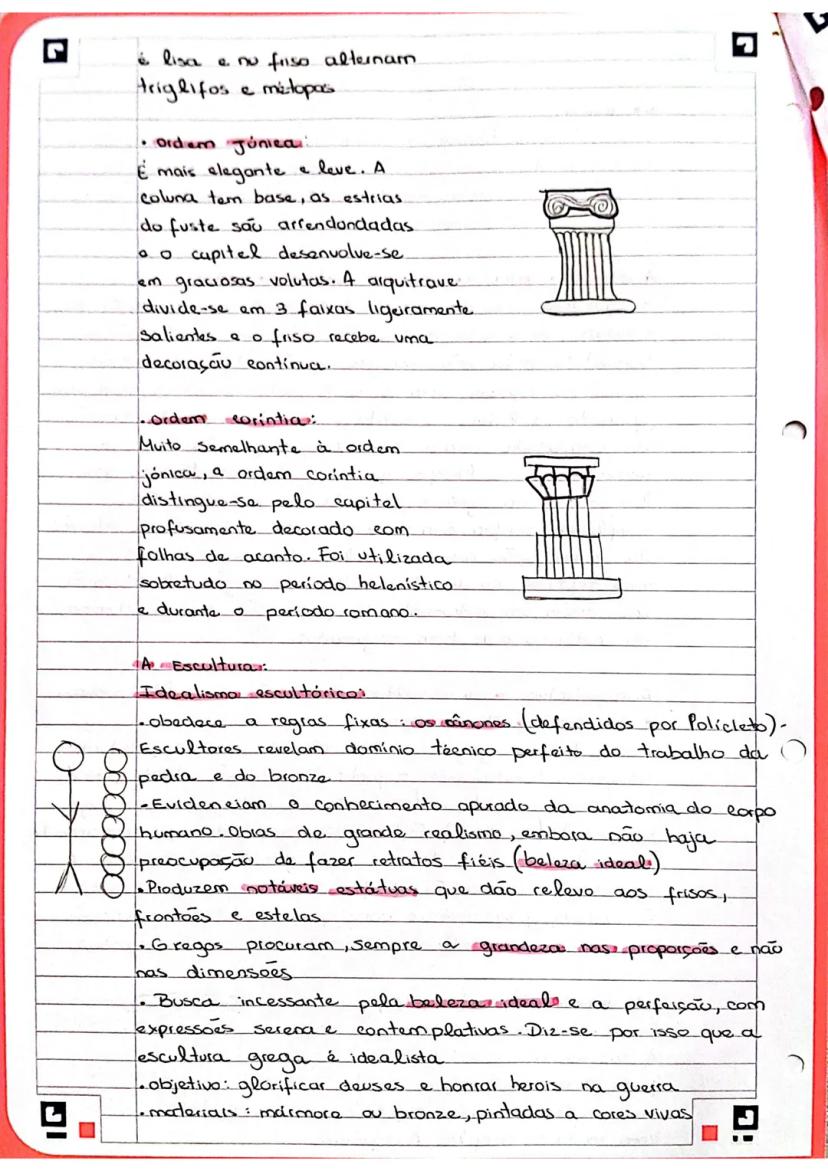 é lisa e no friso alternam
triglifos e métopas
• Ordem Jónica:
É mais elegante e leve. A
coluna tem base, as estrias
do fuste são arrendondadas
e o capitel desenvolve-se
em graciosas volutas. A arquitrave
divide-se em 3 faixas ligeiramente
salientes e o friso recebe uma
decoração contínua.
• Ordem coríntia:
Muito semelhante à ordem
jónica, a ordem coríntia
distingue-se pelo capitel
profusamente decorado com
folhas de acanto. Foi utilizada
sobretudo no período helenístico
e durante o período romano.
A Escultura:
Idealismo escultórico:
• obedece a regras fixas: os cânones (defendidos por Policleto) -
Escultores revelam domínio técnico perfeito do trabalho da
pedra e do bronze
- Evidenciam o conhecimento apurado da anatomia do corpo
humano. Obras de grande realismo, embora não haja
preocupação de fazer retratos fiéis (beleza ideal)
• Produzem notáveis estátuas que dão relevo aos frisos,
frontões e estelas
• Gregos procuram, sempre a grandeza nas proporções e não
nas dimensões
• Busca incessante pela beleza ideal e a perfeição, com
expressões serena e contemplativas. Diz-se por isso que a
escultura grega é idealista
• objetivo: glorificar deuses e honrar herois na guerra
• materiais: mármore ou bronze, pintadas a cores vivas